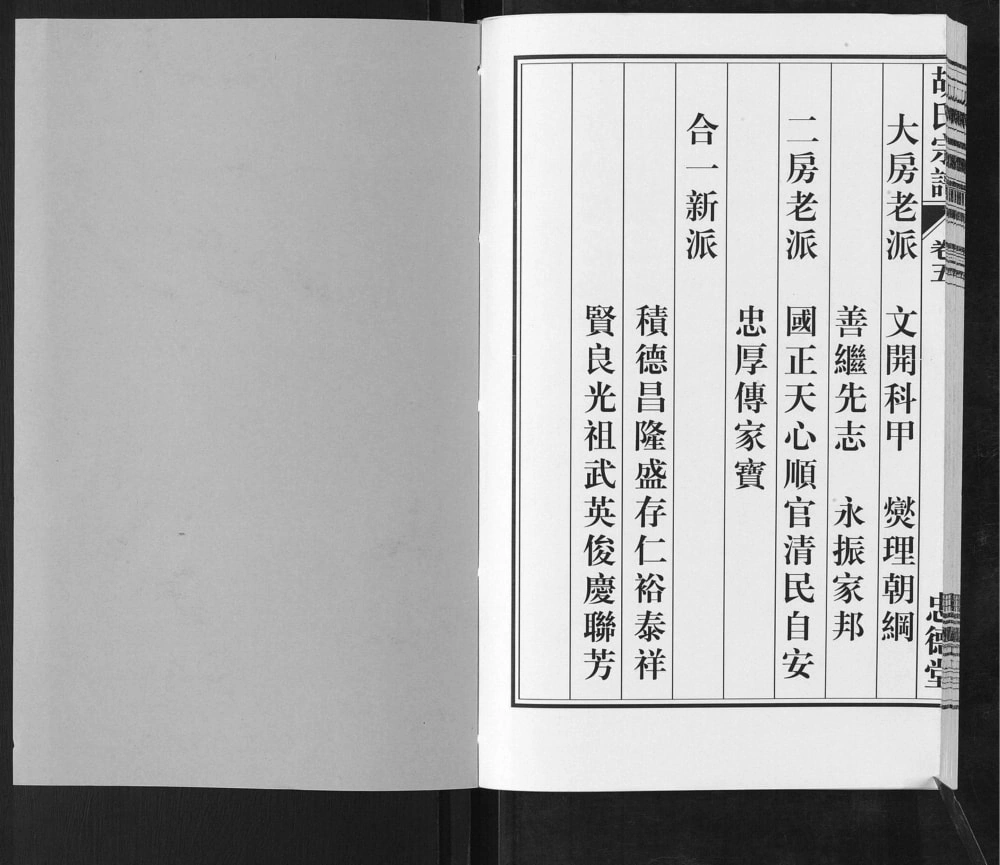 胡氏宗譜
卷五
忠德堂
大房老派 文開科甲 燮理朝綱
善繼先志 永振家邦
二房老派 國正天心順官清民自安
忠厚傳家寶
合一新派
積德昌隆盛存仁裕泰祥
賢良光祖武英俊慶聯芳